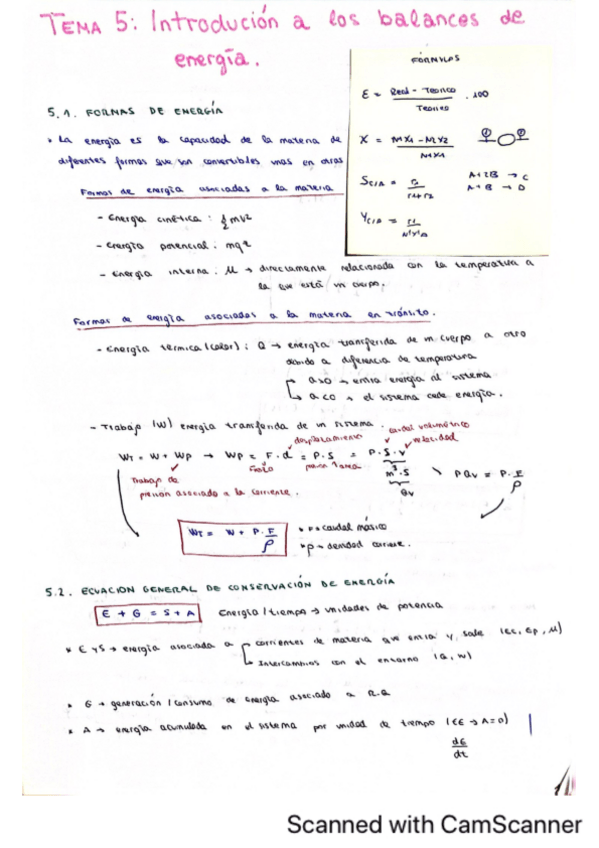 TEMA 5: Introdución a los balances de
energía.
FÓRMULAS
E = Real - Teorico / Teorico . 100
X = Nx1 - Nx2 / Nx1
S C/A = r1 / r1+r2
A+2B → C
A+B → D
Y C/A =
5.1. FORMAS DE ENERGÍA
La energía es la capacidad de la materia de
diferentes formas que son convertibles unas en otras
Formas de energía asociadas a la materia
- Energía cinética: ½mv²
- Energía potencial: mgz
- Energía interna: U → directamente relacionada con la temperatura a
la que está un cuerpo.
Formas de energía asociadas a la materia en tránsito.
- Energía térmica (calor): Q → energía transferida de un cuerpo a otro
debido a diferencia de temperatura
Q>0 → entra energía al sistema
Q<0 → el sistema cede energía.
- Trabajo (W) energía transferida de un sistema.
desplazamiento
caudal volumétrico
velocidad
WT = W + Wp → Wp = F.d = P.S = P.S.v
PQv = P.F/ρ
presión área
m³.s
Qv
Trabajo de
presión asociado a la corriente.
WT = W + P.F/ρ
F = caudal másico
ρ → densidad corriente.
5.2. ECUACION GENERAL DE CONSERVACIÓN DE ENERGÍA
E + G = S + A
Energía/tiempo → unidades de potencia
E y S → energía asociada a
corrientes de materia que entra y sale (Ec, Ep, U)
Intercambios con el entorno (Q, W)
G → generación/consumo de energía asociado a R.Q
A → energía acumulada en el sistema por unidad de tiempo (EE → A=0)
dE
dt
Scanned with CamScanner